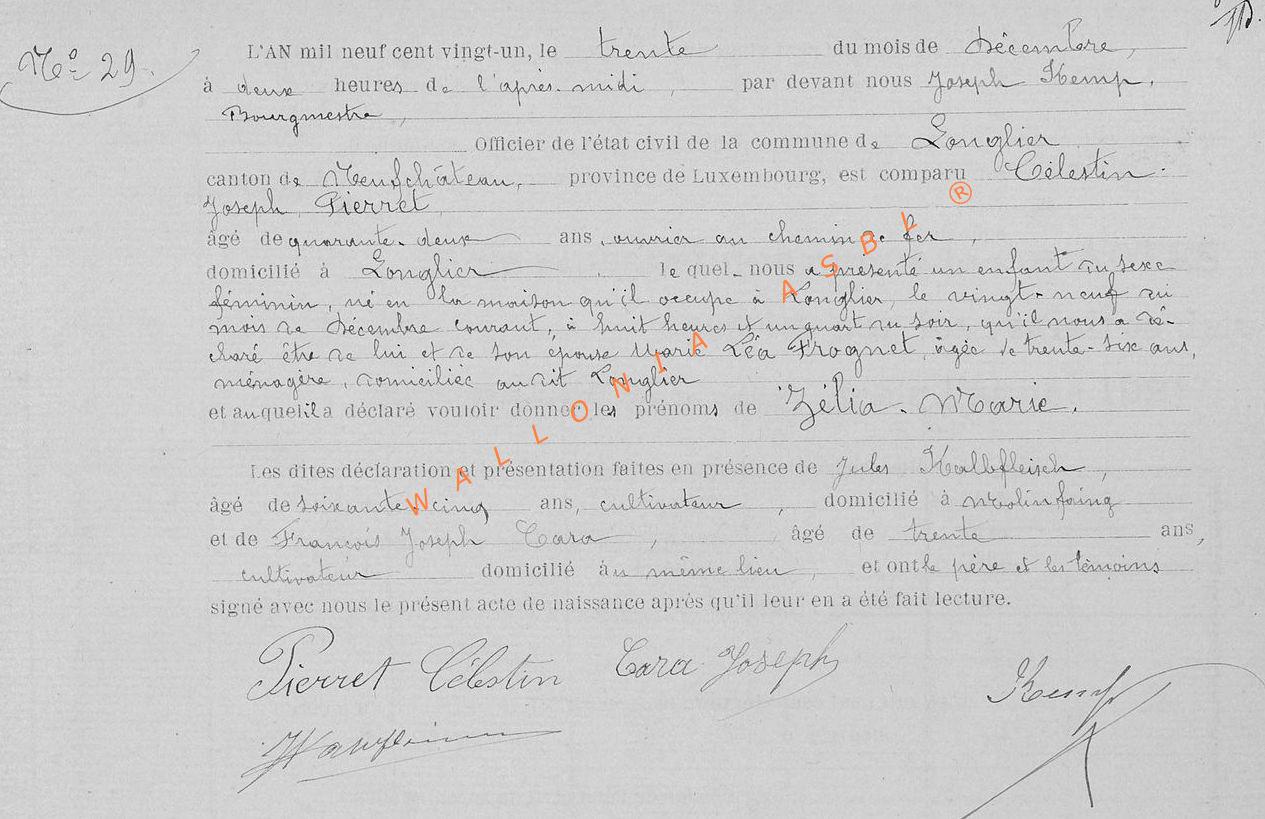 N° 29.
L'AN mil neuf cent vingt-un, le trente du mois de décembre,
à deux heures de l'après-midi, par devant nous Joseph Kemp,
Bourgmestre,
Officier de l'état civil de la commune de Longlier
canton de Neufchâteau, province de Luxembourg, est comparu Célestin
Joseph Pierret
âgé de quarante-deux ans, ouvrier au chemin de fer,
domicilié à Longlier le quel nous a présenté un enfant du sexe
féminin, né en la maison qu'il occupe à Longlier, le vingt-neuf du
mois de décembre courant, à huit heures et un quart du soir, qu'il nous a dé-
claré être de lui et de son épouse Marie Léa Frognet, âgée de trente-six ans,
ménagère, domiciliée au dit Longlier
et auquel il a déclaré vouloir donner les prénoms de Zélia-Marie.
Les dites déclaration et présentation faites en présence de Jules Kalbfleisch,
âgé de soixante-cinq ans, cultivateur, domicilié à Molinfaing
et de François Joseph Cara, âgé de trente ans,
cultivateur domicilié au même lieu, et ont le père et les témoins
signé avec nous le présent acte de naissance après qu'il leur en a été fait lecture.
Pierret Célestin Cara Joseph Kemp
WALLONIA ASBL ®